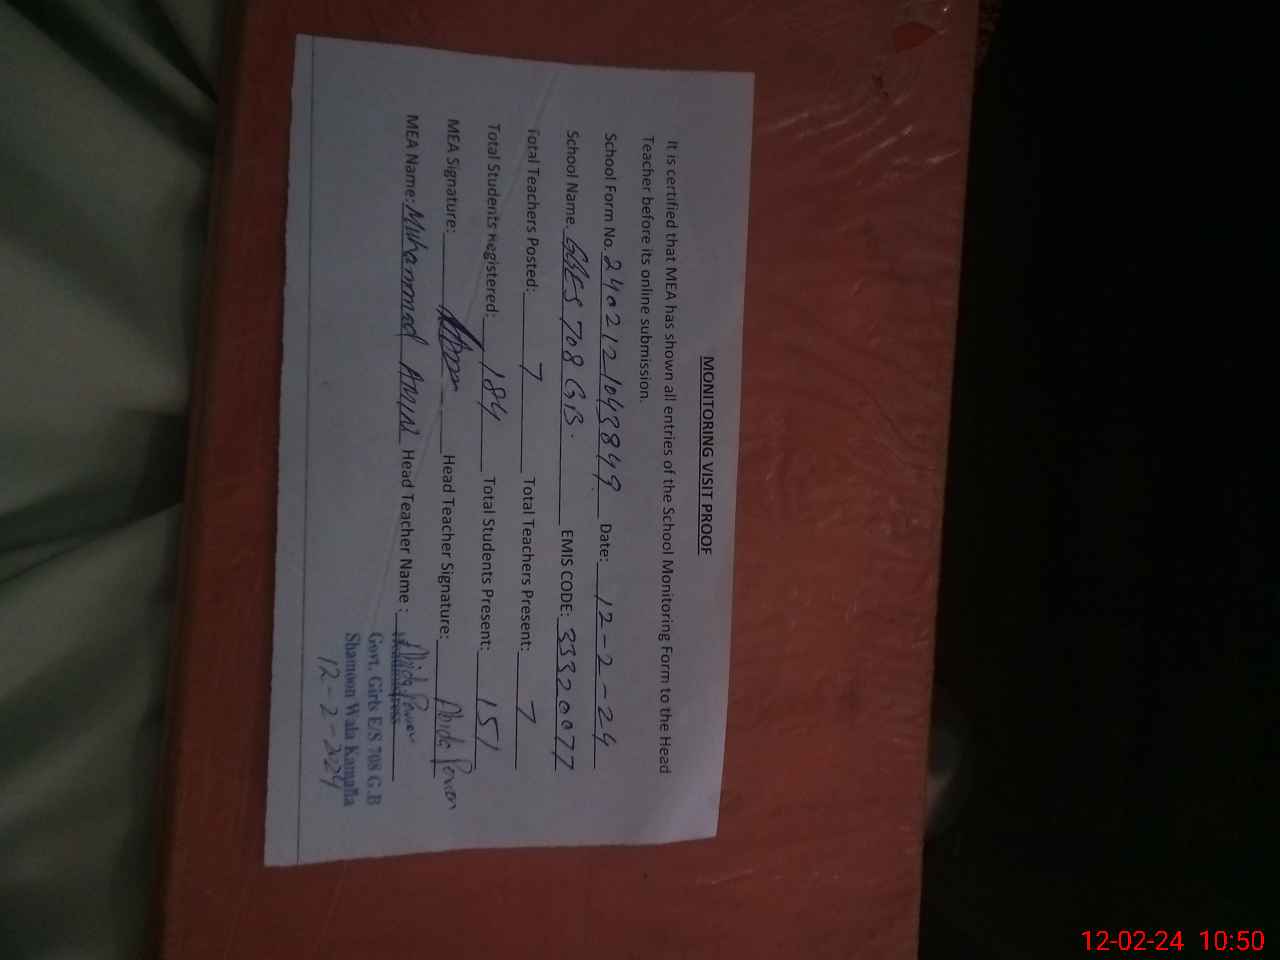 MONITORING VISIT PROOF
It is certified that MEA has shown all entries of the School Monitoring Form to the Head
Teacher before its online submission.
School Form No. 2402121043849 Date: 12-2-24
School Name. GGES 708 GB. EMIS CODE: 33320077
Total Teachers Posted: 7 Total Teachers Present: 7
Total Students Registered: 184 Total Students Present: 151
MEA Signature: Head Teacher Signature: Abida Perven
MEA Name: Muhammad AMIN Head Teacher Name : Abida Perven
Headmistress
Govt. Girls E/S 708 G.B
Shamoon Wala Kamalia
12-2-2024
12-02-24 10:50